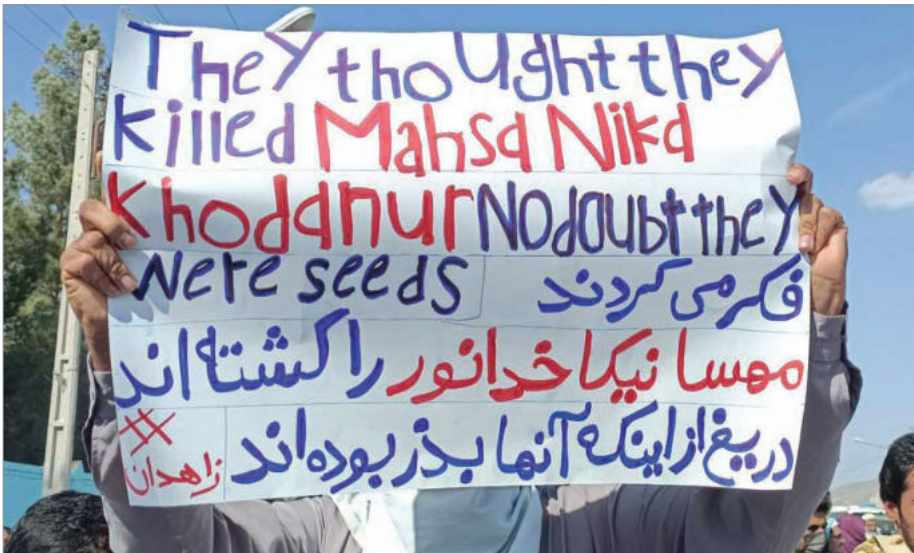 They thought they
killed Mahsa Nika
Khodanur No doubt they
were seeds
فکر می کردند
مهسا نیکا خدانور را کشته اند
دریغ از اینکه آنها بذر بوده اند
#زاهدان